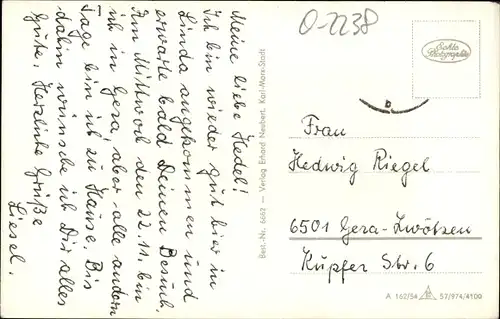 O-2238
Meine liebe Hedel!
Ich bin wieder gut hier in
Linda angekommen und
erwarte bald Deinen Besuch.
Am Mittwoch den 22.11. bin
ich in Gera, aber alle andern
Tage bin ich zu Hause. Bis
dahin wünsche ich Dir alles
Gute. Herzliche Grüße
Liesel.
Best.-Nr. 6662 — Verlag Erhard Neubert, Karl-Marx-Stadt
Echte
Photographie
Frau
Hedwig Riegel
6501 Gera-Zwötzen
Kupfer Str. 6
A 162/54 57/974/4100